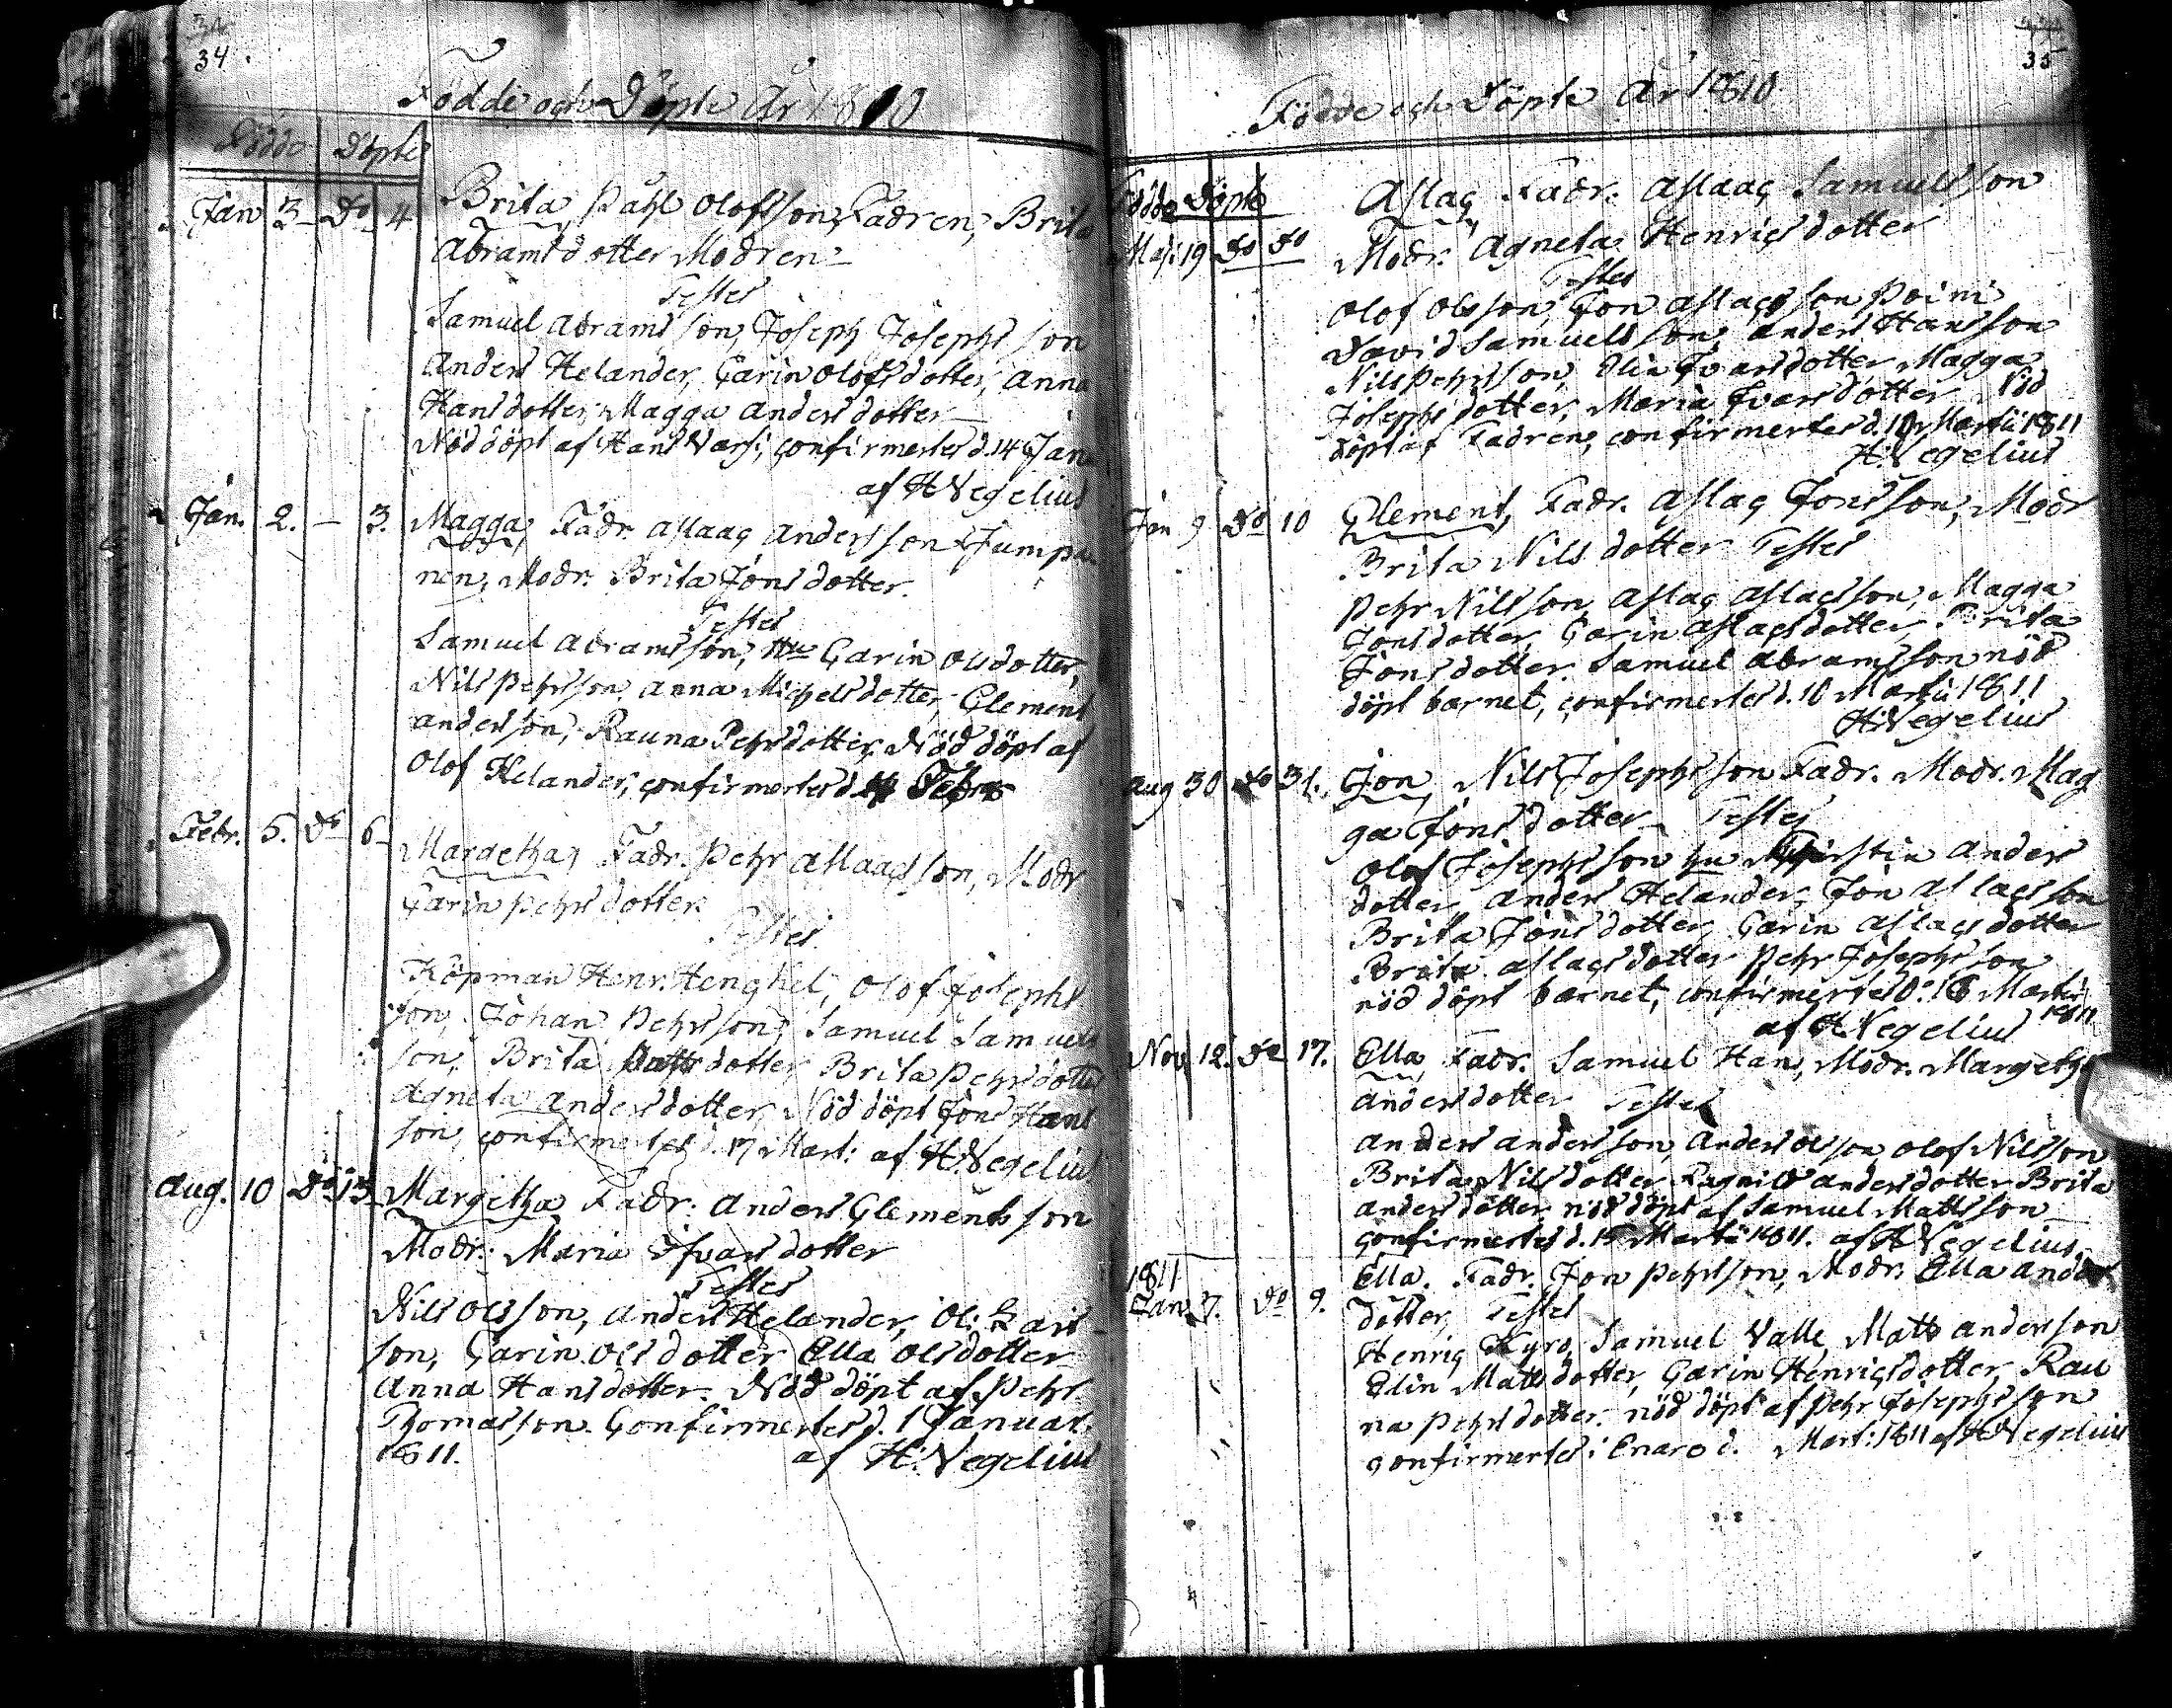 34
Födde och Döpte År 1810
Födde Döpte
Jan 3 Do 4 Brita, Påhl Olofsson, Fadren, Brita
Abramsdotter Modren
Testes
Samuel Abramsson, Joseph Josephsson
Anders Helander, Carin Olofsdotter, Anna
Hansdotter, Magga Andersdotter
Nöddöpt af Hans, confirmertes d. 14 Jan.
af H Wegelius
Jan. 2. – 3. Magga, Fadr. Aslaac Andersson Jumpa
nen, Modr. Brita Jonsdotter.
Testes
Samuel Abramsson, Hu Carin Olsdotter,
Nils Pehrsson, Anna Michelsdotter, Clement
Andersson, Rauna Pehrsdotter, Nöd döpt af
Olof Helander, confirmertes d. Febr
Febr. 5. Do 6 Margetha, Fadr. Pehr Aslaacsson, Modr
Carin Pehrsdotter.
Testes
Köpman Henr. Henghel, Olof Josephs
son, Johan Pehrsson, Samuel Samuels
son, Brita dotter Brita Pehrsdotter
Agneta Andersdotter, Nöd döpt Jons Hans
son, confirmertes d. 17 Mart: af H. Wegelius
Aug. 10 Do 13 Margetha Fadr: Anders Clementsson
Modr: Maria Ifvarsdotter
Testes
Nils Olsson, Anders Helander, Ol: Lars
son, Carin Olsdotter Ella Olsdotter
Anna Hansdotter. Nöd döpt af Pehr
Thomasson. Confirmertes d. 1 Januar.
1811. af H. Wegelius
35
Födde och Döpte År 1810
Födde Döpte
Maji 19 Do Do Aslac Fadr. Aslaac Samuelsson
Modr. Agneta Henricsdotter
Testes
Olof Olsson, Jon Aslacsson Poini
David Samuelsson, Anders Hansson
Nils Pehrsson, Elin Ivarsdotter Magga
Josephsdotter, Maria Ivarsdotter Nöd
döpt af Fadren, confirmertes d. 10 Martii 1811
H. Wegelius
Jan 9 Do 10 Clement, Fadr. Aslac Jonsson, Modr
Brita Nilsdotter Testes
Pehr Nilsson, Aslac Aslacsson, Magga
Jonsdotter, Carin Aslacsdotter, Brita
Jonsdotter. Samuel Abramsson nöd
döpt barnet, confirmertes d. 10 Martii 1811
H. Wegelius
Aug 30 Do 31. Jon, Nils Josephsson Fadr. Modr. Mag
ga Jonsdotter Testes
Olof Josephsson hu Christin Anders
dotter, Anders Helander, Jon Aslacsson
Brita Jonsdotter, Carin Aslacsdotter
Brita Aslacsdotter Pehr Josephsson
nöd döpt barnet, confirmertes d. 16 Martii
1811
af H Wegelius
Nov 12. Do 17. Ella, Fadr. Samuel Hans, Modr. Margetha
Andersdotter Testes
Anders Andersson, Anders Olsson Olof Nilsson
Brita Nilsdotter Ragnild Andersdotter Brita
Andersdotter nöd döpt af Samuel Mattsson
confirmertes d. Martii 1811. af H Wegelius
1811
Jan 7. Do 9. Ella. Fadr. Jon Pehrsson, Modr. Ella Anders
dotter, Testes
Henric Kyrö, Samuel Valle, Matts Andersson
Elin Mattsdotter, Carin Henricsdotter, Rau
na Pehrsdotter. nöd döpt af Pehr Josephsson
confirmertes i Enare d. Mart: 1811 af H Wegelius